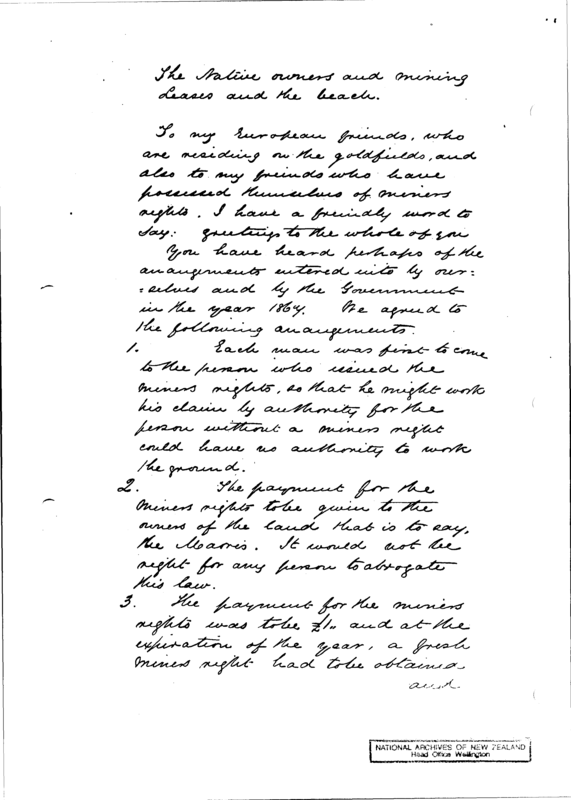 The Native owners and mining
Leases and the beach.
To my European friends, who
are residing on the goldfields, and
also to my freinds who have
possessed themselves of miners
rights. I have a freindly word to
say: greetings to the whole of you
You have heard perhaps of the
arrangements entered into by our=
=selves and by the Government
in the year 1867. We agreed to
the following arrangements.
1. Each man was first to come
to the person who issued the
miners rights, so that he might work
his claim by authority for the
person without a miners right
could have no authority to work
the ground.
2. The payment for the
miners rights to be given to the
owners of the land that is to say,
the Maoris. It would not be
right for any person to abrogate
this law.
3. The payment for the miners
rights was to be £1.. and at the
expiration of the year, a fresh
miners right had to be obtained
and
NATIONAL ARCHIVES OF NEW ZEALAND
Head Office Wellington